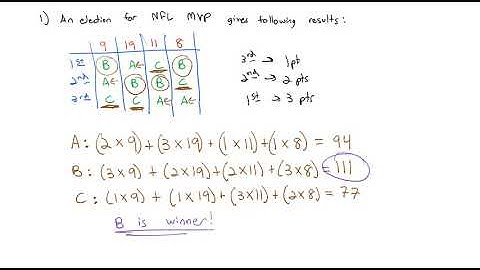 1) An election for NFL MVP gives following results:
9 19 11 8
1st B A C B
2nd A B B C
3rd C C A A
3rd → 1pt
2nd → 2 pts
1st → 3 pts
A: (2 x 9) + (3 x 19) + (1 x 11) + (1 x 8) = 94
B: (3 x 9) + (2 x 19) + (2 x 11) + (3 x 8) = 111
C: (1 x 9) + (1 x 19) + (3 x 11) + (2 x 8) = 77
B is winner!